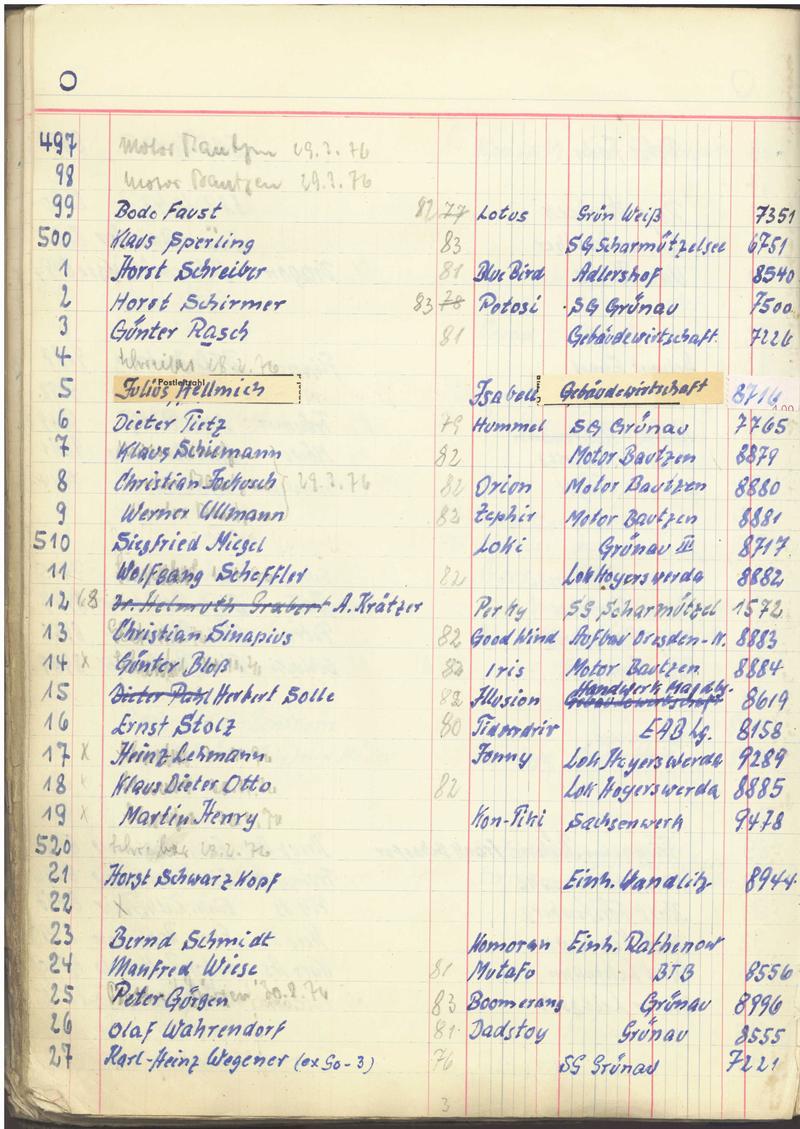 O
497 Motor Bautzen 29.2.76
98 Motor Bautzen 29.2.76
99 Bodo Faust 82 77 Lotus Grün Weiß 7351
500 Klaus Sperling 83 SG Scharmützelsee 6751
1 Horst Schreiber 81 Blue Bird Adlershof 8540
2 Horst Schirmer 83 78 Potosi SG Grünau 7500
3 Günter Rasch 81 Gebäudewirtschaft 7226
4 Schreiber 28.2.76
5 Julius Hellmich Postleitzahl Isabell Gebäudewirtschaft 8716
6 Dieter Tietz 79 Hummel SG Grünau 7765
7 Klaus Schiemann 82 Motor Bautzen 8879
8 Christian 29.2.76 82 Orion Motor Bautzen 8880
9 Werner Ullmann 82 Zephir Motor Bautzen 8881
510 Siegfried Miegel Loki Grünau III 8717
11 Wolfgang Scheffler 82 Lok Hoyerswerda 8882
12 68 Dr. Helmuth Grabert A. Krätzer Perky SG Scharmützel 1572
13 Christian Sinapius 82 Good Wind Aufbau Dresden-N. 8883
14 x Günter Bloß 82 Iris Motor Bautzen 8884
15 Dieter Pahl Herbert Solle 82 Illusion Gebäudewirtschaft Handwerk Magdbg. 8619
16 Ernst Stolz 80 EAB Lg. 8158
17 x Heinz Lehmann Jonny Lok Hoyerswerda 9289
18 x Klaus Dieter Otto 82 Lok Hoyerswerda 8885
19 x Martin Henry Kon-Tiki Sachsenwerk 9478
520 Schreiber 28.2.76
21 Horst Schwarzkopf Einh. Wandlitz 8944
22 x
23 Bernd Schmidt Komoran Einh. Rathenow
24 Manfred Wiese 81 Mutafo BTB 8556
25 Peter Görgen 83 Boomerang Grünau 8996
26 Olaf Wahrendorf 81 Dadstoy Grünau 8555
27 Karl-Heinz Wegener (ex GO-3) 76 SG Grünau 7221
3